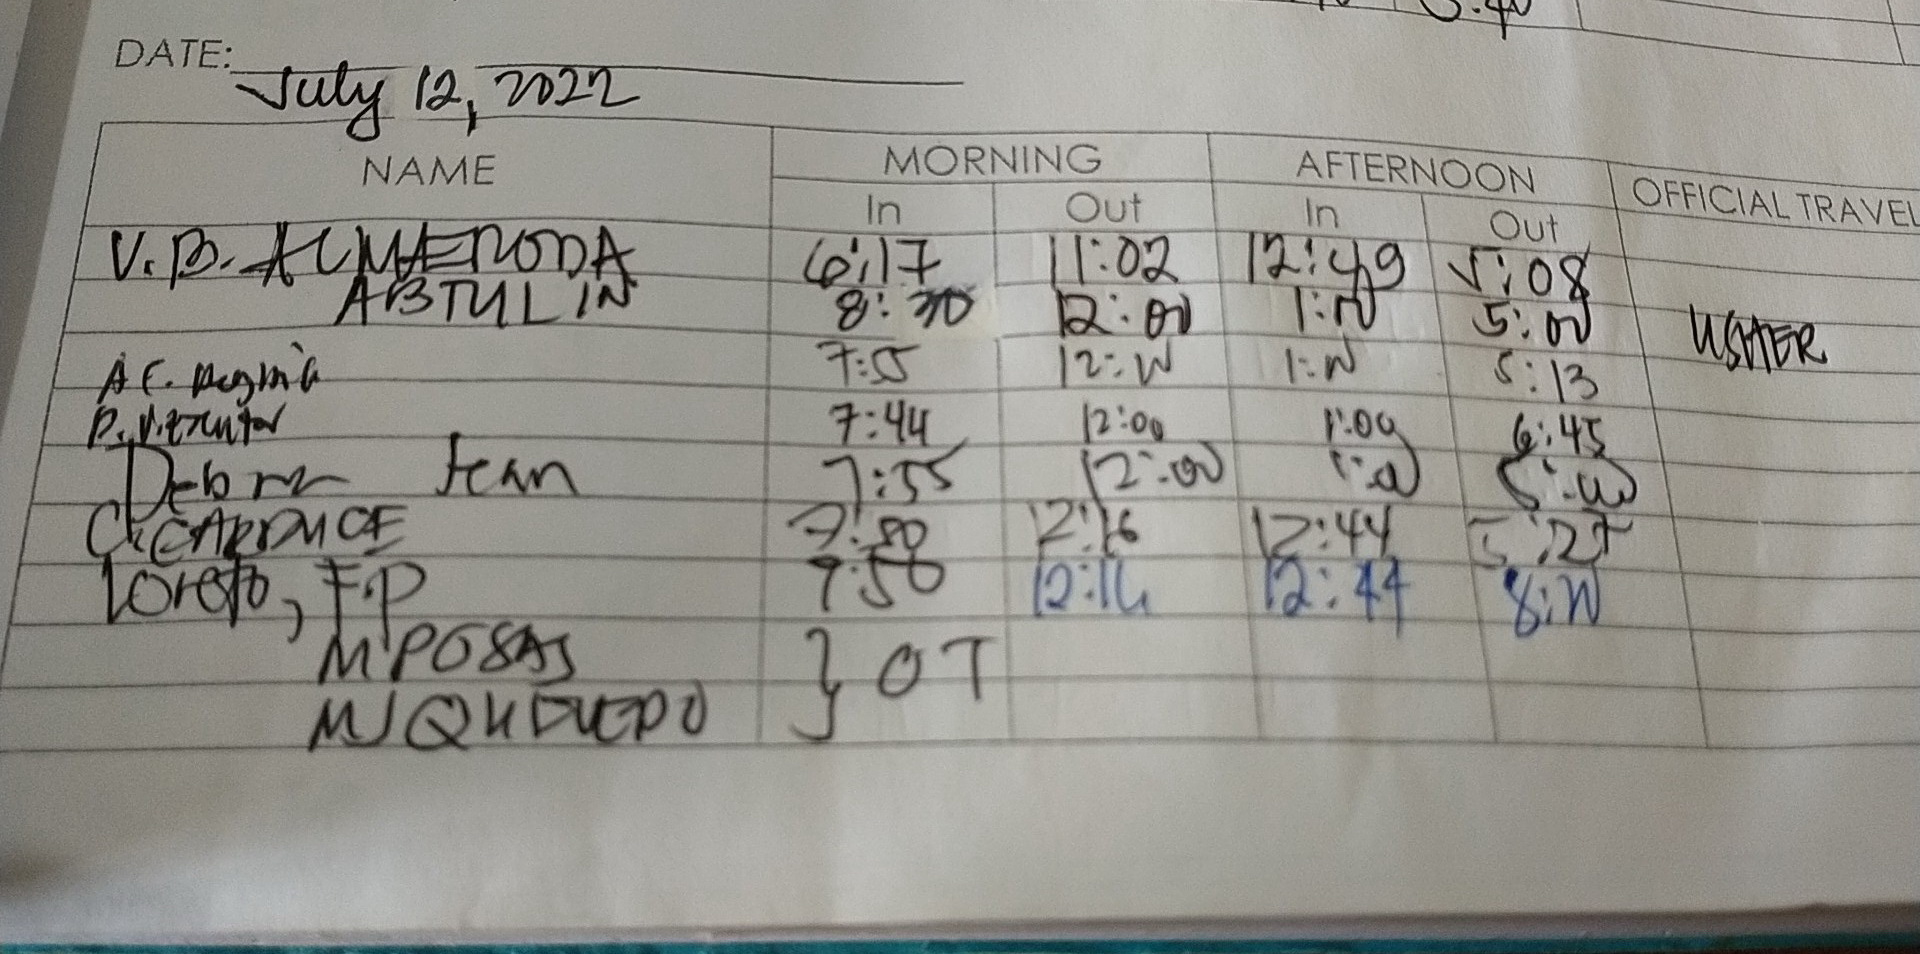 DATE: July 12, 2022
NAME MORNING AFTERNOON OFFICIAL TRAVEL
In Out In Out
V.B. ALMENODA 6:17 11:02 12:49 5:08
ABTULIN 8:30 12:00 1:00 5:00 USHER
7:55 12:00 1:00 5:13
7:44 12:00 1:00 6:45
Debra Jean 7:55 12:00 1:00 5:00
12:16 12:44 5:27
Loreto, F.P 7:50 12:16 12:44 8:00
M POSAS } OT
M QUEVEDO